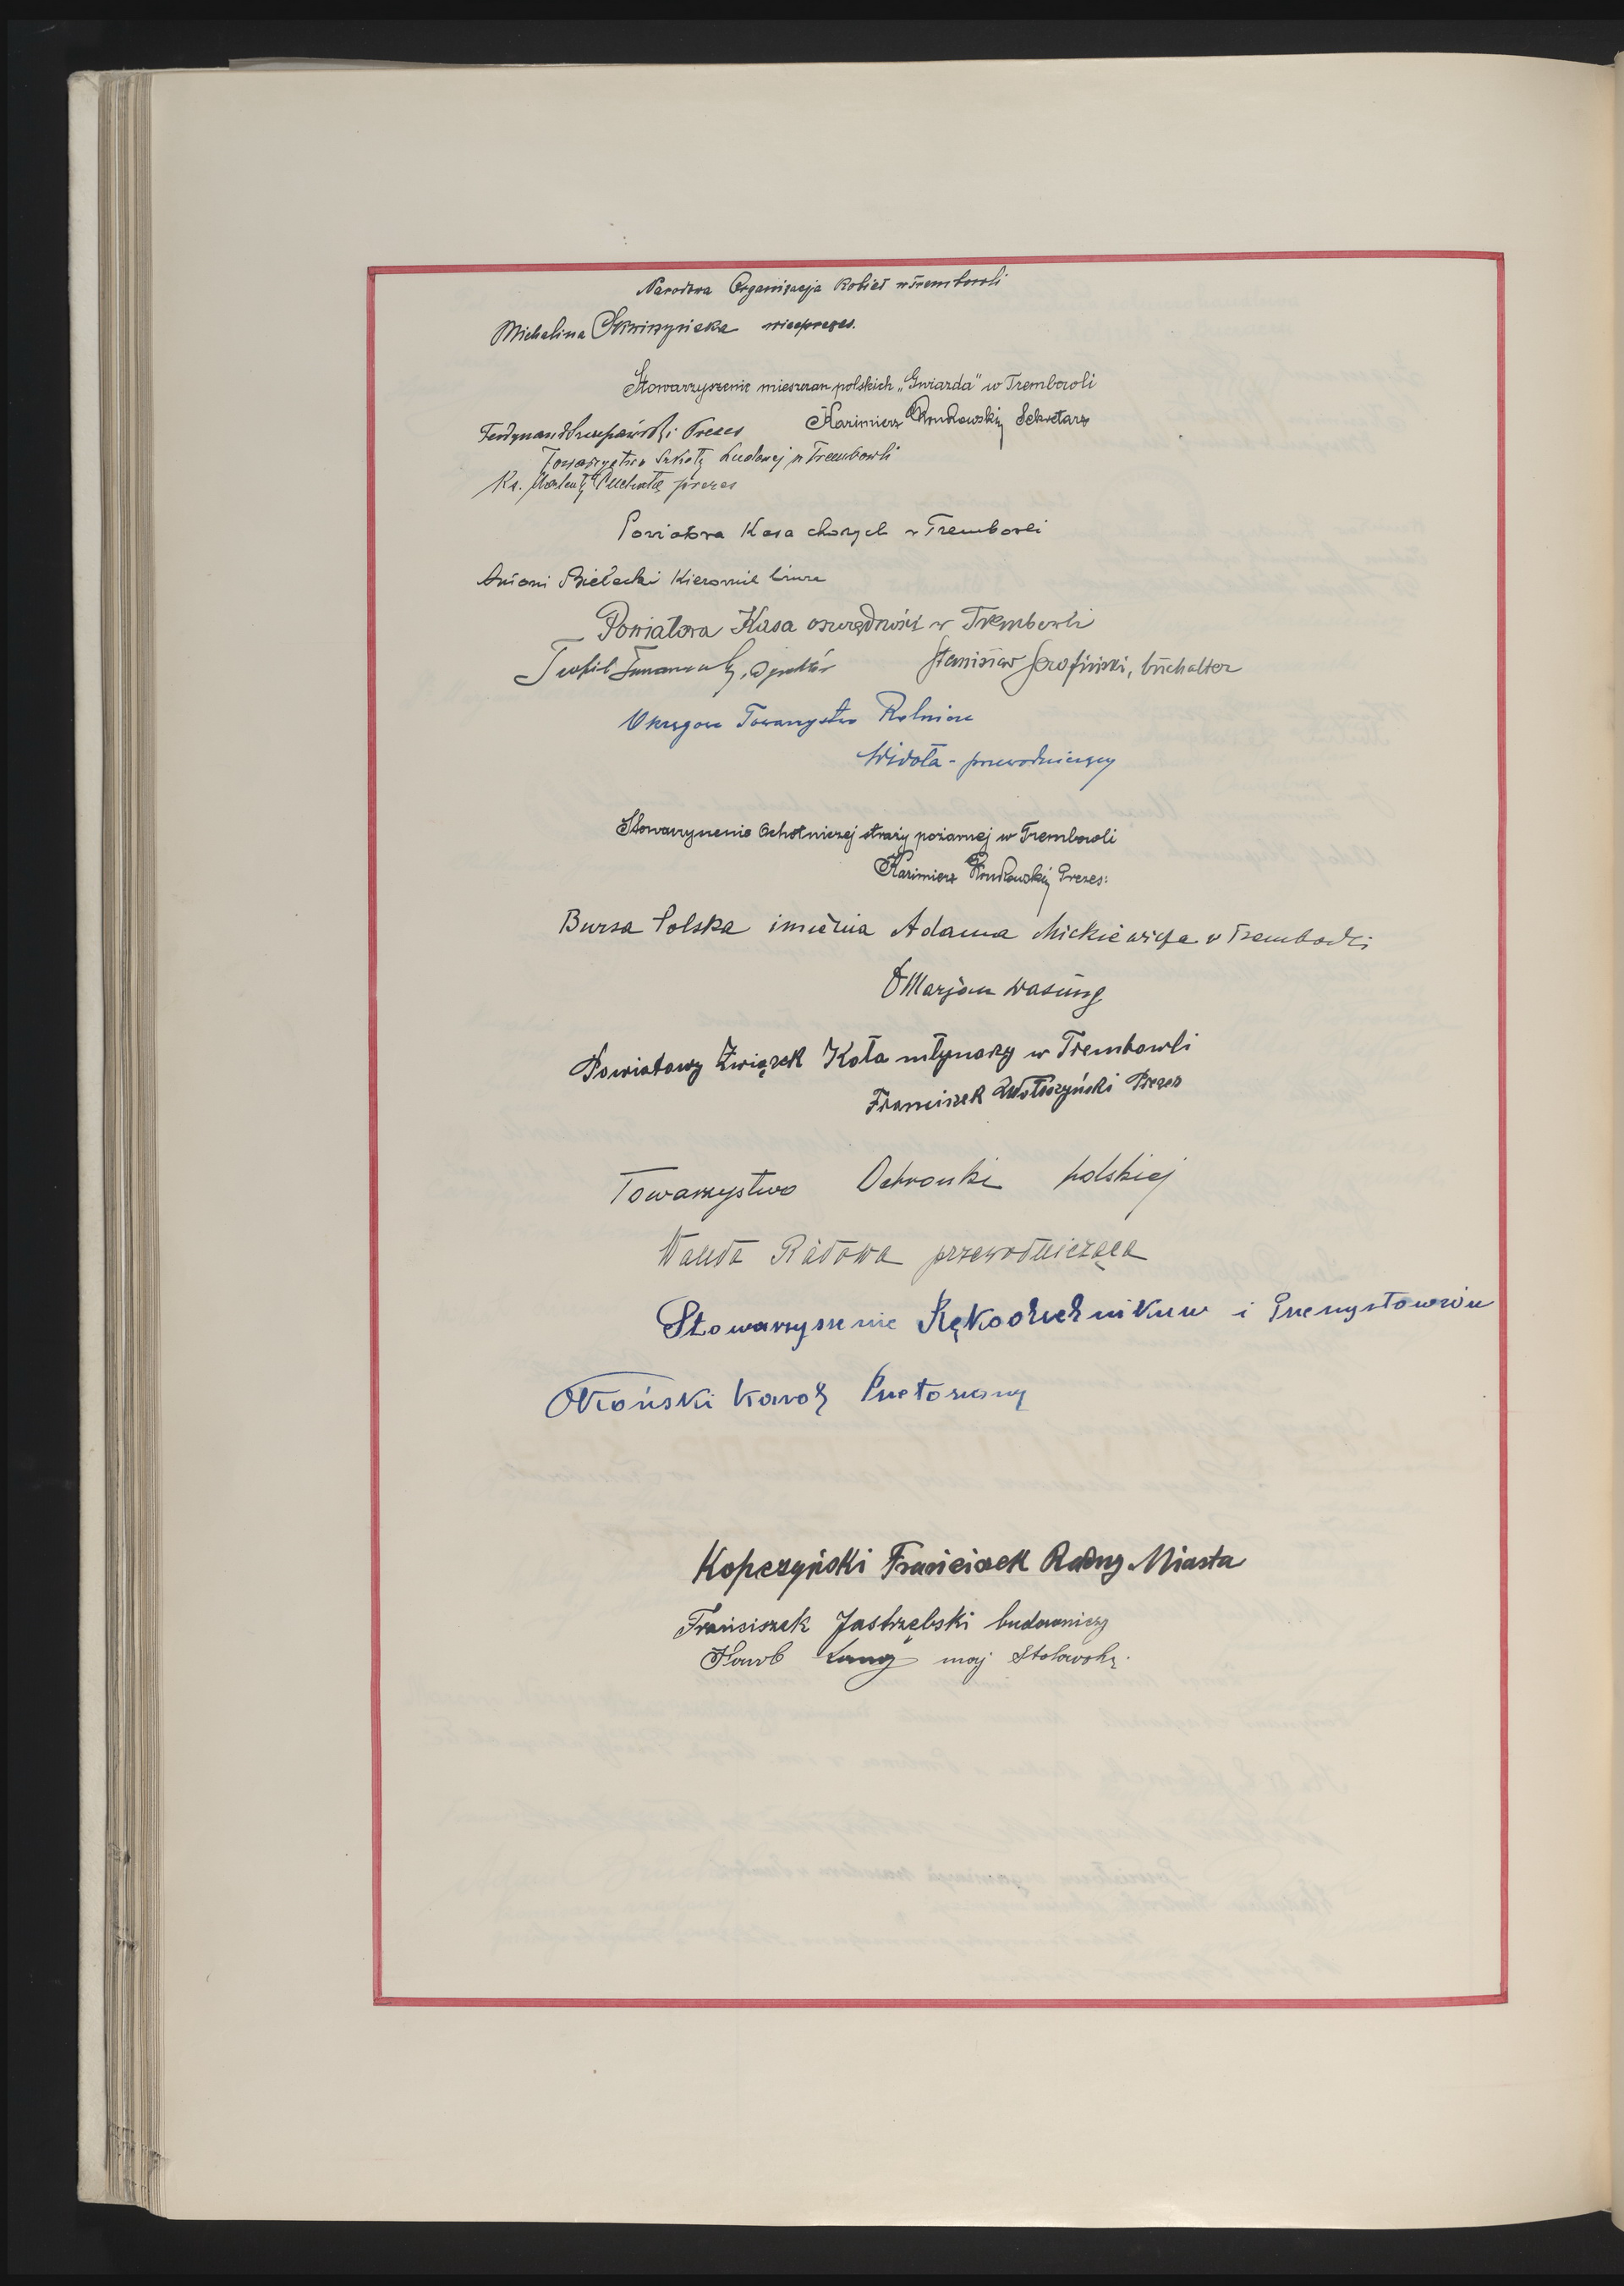 Narodowa Organizacja Kobiet w Trembowli
Michalina Skwirzyńska wiceprezes.
Stowarzyszenie mieszczan polskich „Gwiazda" w Trembowli
Ferdynand Szczepański Prezes Kazimierz Sekretarz
Towarzystwo Szkoły Ludowej w Trembowli
Ks. Walenty Puchała prezes
Powiatowa Kasa chorych w Trembowli
Antoni Bielecki Kierownik biura
Powiatowa Kasa oszczędności w Trembowli
Teofil Stanisław Serafiński, buchalter
Okręgowe Towarzystwo Rolnicze
Widota - przewodniczący
Stowarzyszenie Ochotniczej straży pożarnej w Trembowli
Kazimierz Prezes:
Bursa Polska imienia Adama Mickiewicza w Trembowli
Marjan Wasung
Powiatowy Związek Koła młynarzy w Trembowli
Franciszek Wołoszyński Prezes
Towarzystwo Ochronki polskiej
Wanda Radowa przewodnicząca
Stowarzyszenie Rękodzielnikuw i Przemysłowców
Okoński Karol Przełożony
Kopczyński Franciszek Radny Miasta
Franciszek Jastrzębski budowniczy
Karol Lang maj Stolarski.